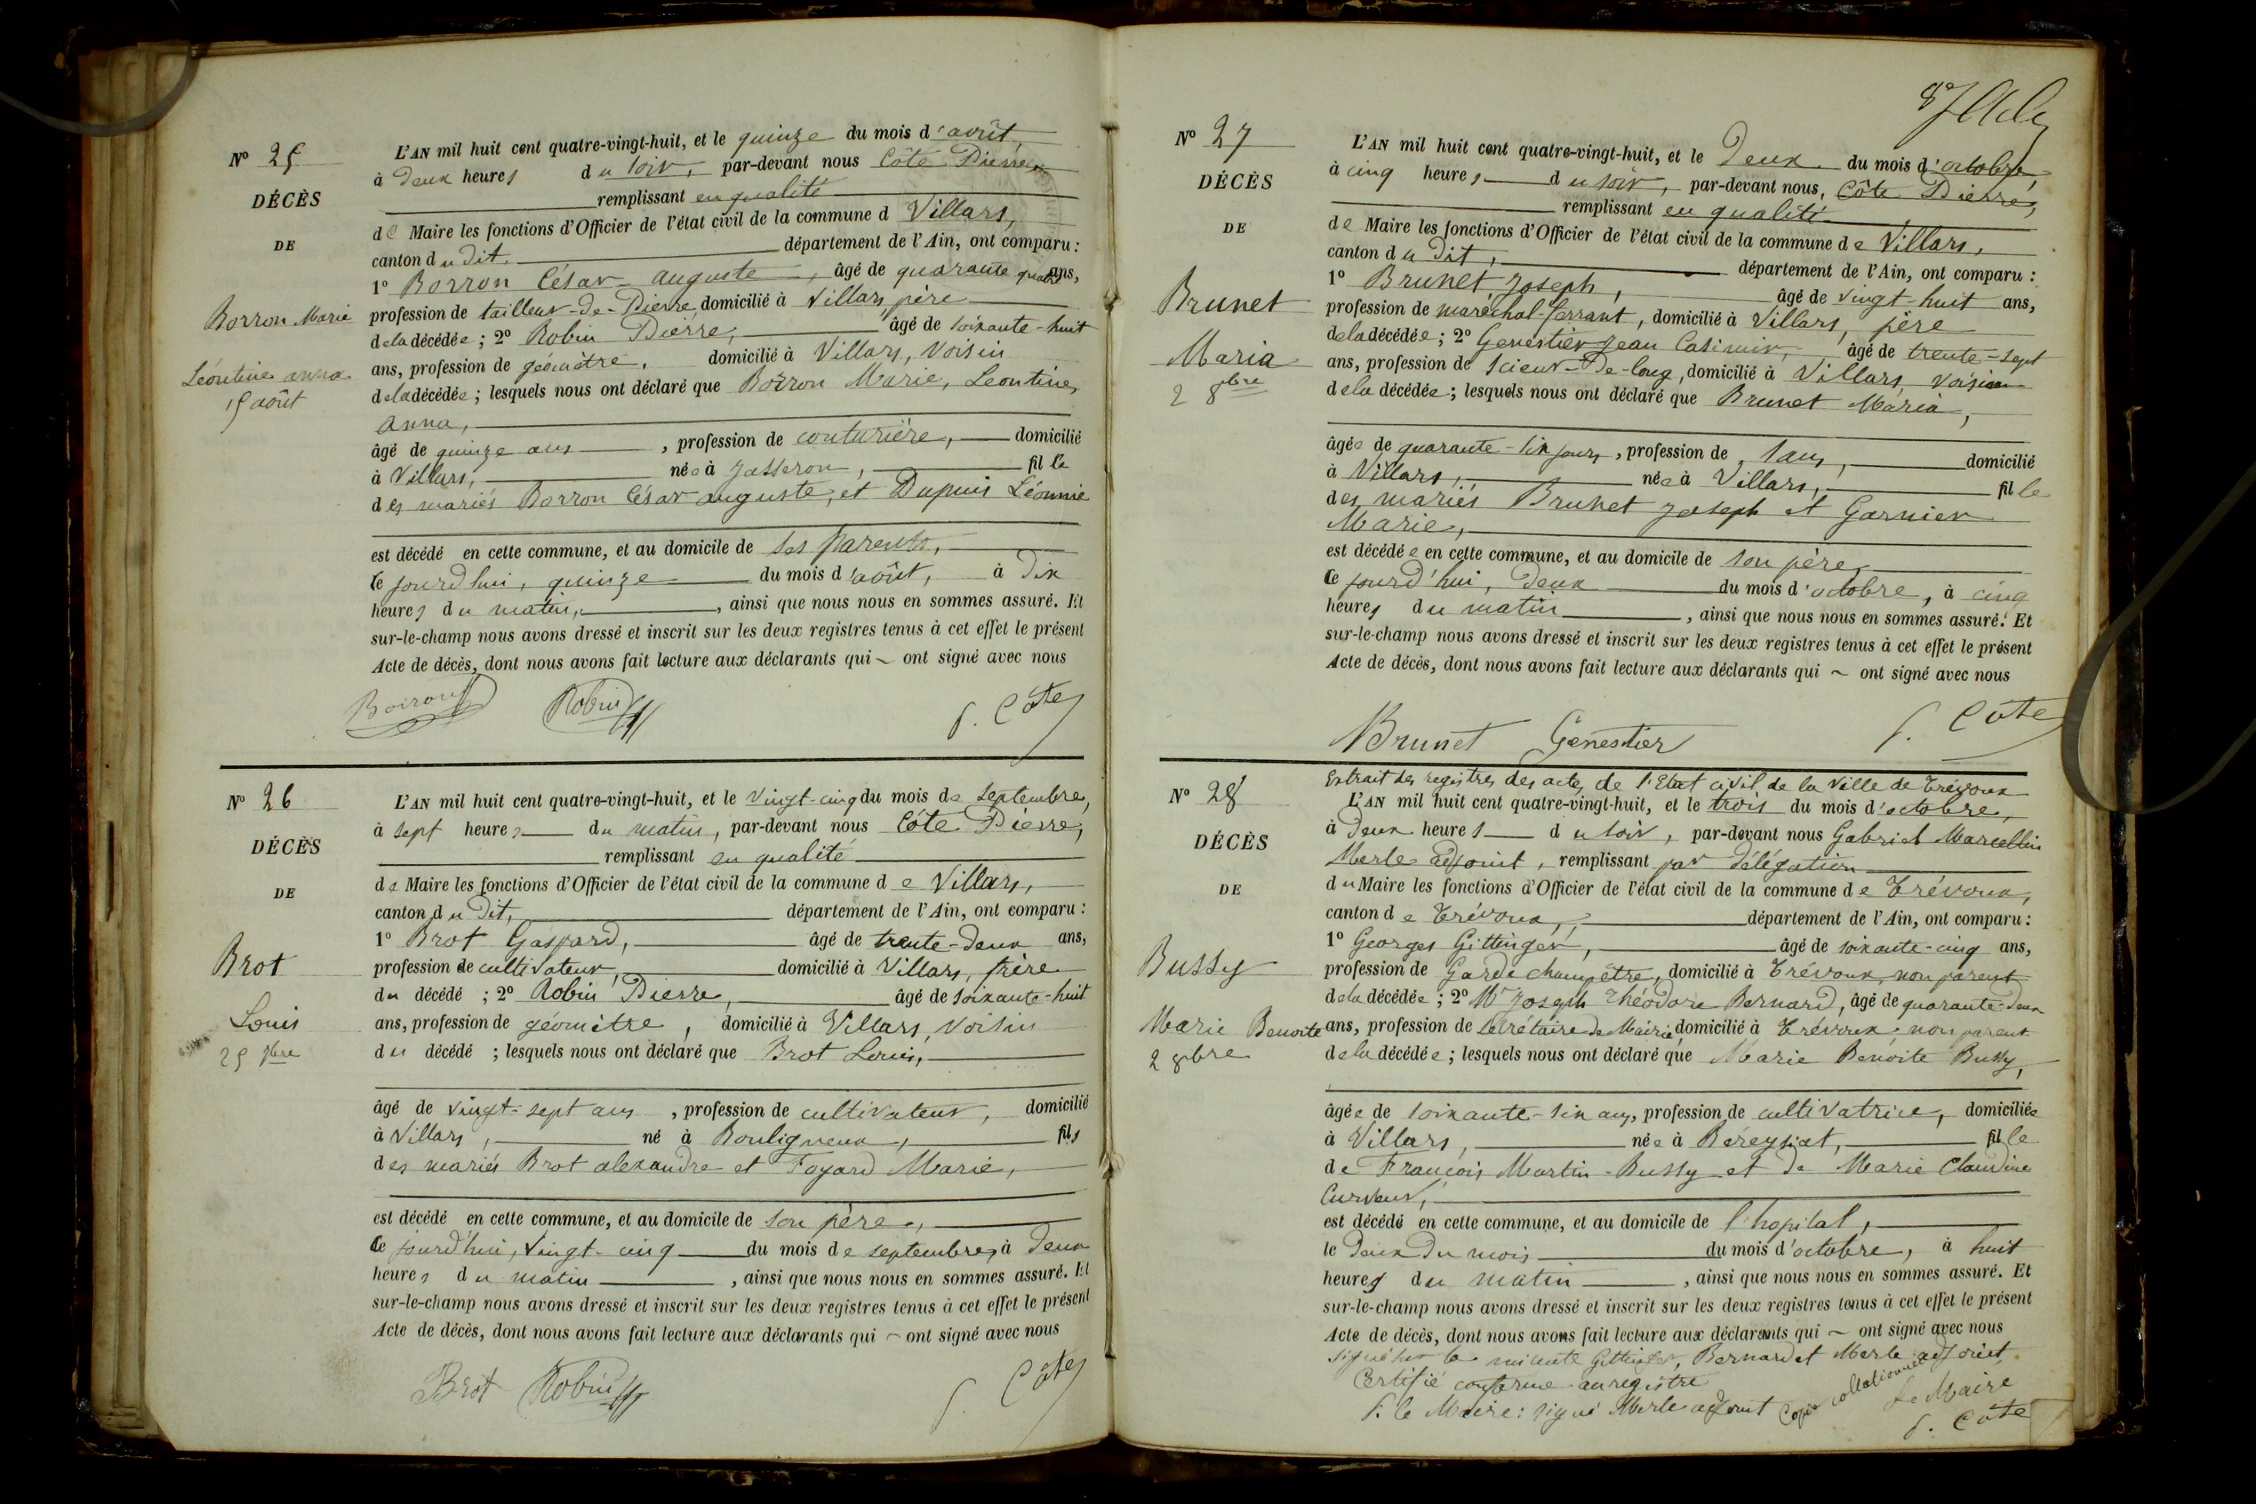 N° 25
DÉCÈS
DE
Borron Marie
Léontine anna
15 août
L'AN mil huit cent quatre-vingt-huit, et le quinze du mois d'août
à deux heures du soir, par-devant nous Côte Pierre,
remplissant en qualité
de Maire les fonctions d'Officier de l'état civil de la commune d Villars,
canton du dit, département de l'Ain, ont comparu :
1° Borron César auguste, âgé de quarante quatre ans,
profession de tailleur-de-Pierre, domicilié à Villars père
de la décédée ; 2° Robin Pierre, âgé de soixante-huit
ans, profession de géomètre, domicilié à Villars, voisin
de la décédée ; lesquels nous ont déclaré que Borron Marie, Leontine,
anna,
âgé de quinze ans, profession de couturière, domicilié
à Villars, née à Jasseron, fille
des mariés Borron César auguste, et Dupuis Léonnie
est décédé en cette commune, et au domicile de ses parents,
ce jourd'hui, quinze du mois d'août, à dix
heures du matin, ainsi que nous nous en sommes assuré. Et
sur-le-champ nous avons dressé et inscrit sur les deux registres tenus à cet effet le présent
Acte de décès, dont nous avons fait lecture aux déclarants qui ~ ont signé avec nous
Boiron Robin P. Côte
N° 26
DÉCÈS
DE
Brot
Louis
25 7bre
L'AN mil huit cent quatre-vingt-huit, et le vingt-cinq du mois de septembre,
à sept heures du matin, par-devant nous Côte Pierre,
remplissant en qualité
de Maire les fonctions d'Officier de l'état civil de la commune de Villars,
canton du dit, département de l'Ain, ont comparu :
1° Brot Gaspard, âgé de trente-deux ans,
profession de cultivateur, domicilié à Villars, frère
du décédé ; 2° Robin Pierre, âgé de soixante-huit
ans, profession de géomètre, domicilié à Villars, voisin
du décédé ; lesquels nous ont déclaré que Brot Louis,
âgé de vingt-sept ans, profession de cultivateur, domicilié
à Villars, né à Bouligneux, fils
des mariés Brot alexandre et Foyard Marie,
est décédé en cette commune, et au domicile de son père,
ce jourd'hui, vingt-cinq du mois de septembre, à deux
heures du matin, ainsi que nous nous en sommes assuré. Et
sur-le-champ nous avons dressé et inscrit sur les deux registres tenus à cet effet le présent
Acte de décès, dont nous avons fait lecture aux déclarants qui ~ ont signé avec nous
Brot Robin P. Côte
N° 27
DÉCÈS
DE
Brunet
Maria
2 8bre
L'AN mil huit cent quatre-vingt-huit, et le Deux du mois d'octobre,
à cinq heures du soir, par-devant nous, Côte Pierre,
remplissant en qualité
de Maire les fonctions d'Officier de l'état civil de la commune de Villars,
canton du dit, département de l'Ain, ont comparu :
1° Brunet Joseph, âgé de vingt-huit ans,
profession de maréchal-ferrant, domicilié à Villars, père
de la décédée ; 2° Genestier Jean Casimir, âgé de trente-sept
ans, profession de scieur-De-long, domicilié à Villars, voisin
de la décédée ; lesquels nous ont déclaré que Brunet Maria,
âgée de quarante-six jours, profession de, sans, domicilié
à Villars, née à Villars, fille
des mariés Brunet Joseph et Garnier
Marie,
est décédée en cette commune, et au domicile de son père,
ce jourd'hui, Deux du mois d'octobre, à cinq
heures du matin, ainsi que nous nous en sommes assuré. Et
sur-le-champ nous avons dressé et inscrit sur les deux registres tenus à cet effet le présent
Acte de décès, dont nous avons fait lecture aux déclarants qui ~ ont signé avec nous
Brunet Genestier P. Côte
N° 28
DÉCÈS
DE
Bussy
Marie Benoite
2 8bre
Extrait des registres des actes de l'Etat civil, de la Ville de Trévoux
L'AN mil huit cent quatre-vingt-huit, et le trois du mois d'octobre,
à Deux heures du soir, par-devant nous Gabriel Marcellin
Merle adjoint, remplissant par délégation
du Maire les fonctions d'Officier de l'état civil de la commune de Trévoux,
canton de Trévoux, département de l'Ain, ont comparu :
1° Georges Gittinger, âgé de soixante-cinq ans,
profession de Garde champêtre, domicilié à Trévoux, non parent
de la décédée ; 2° Mr Joseph Théodore Bernard, âgé de quarante-deux
ans, profession de secrétaire de Mairie, domicilié à Trévoux, non parent
de la décédée ; lesquels nous ont déclaré que Marie Benoite Bussy,
âgée de soixante-six ans, profession de cultivatrice, domiciliée
à Villars, née à Béreyziat, fille
de François Martin-Bussy et de Marie Claudine
est décédé en cette commune, et au domicile de l'hopital,
le Deux Du mois du mois d'octobre, à huit
heures du matin, ainsi que nous nous en sommes assuré. Et
sur-le-champ nous avons dressé et inscrit sur les deux registres tenus à cet effet le présent
Acte de décès, dont nous avons fait lecture aux déclarants qui ~ ont signé avec nous
signé sur la minute Gittinger, Bernard et Merle adjoint.
Certifié conforme au registre
P. le Maire : signé Merle adjoint Copie collationnée Le Maire
P. Côte